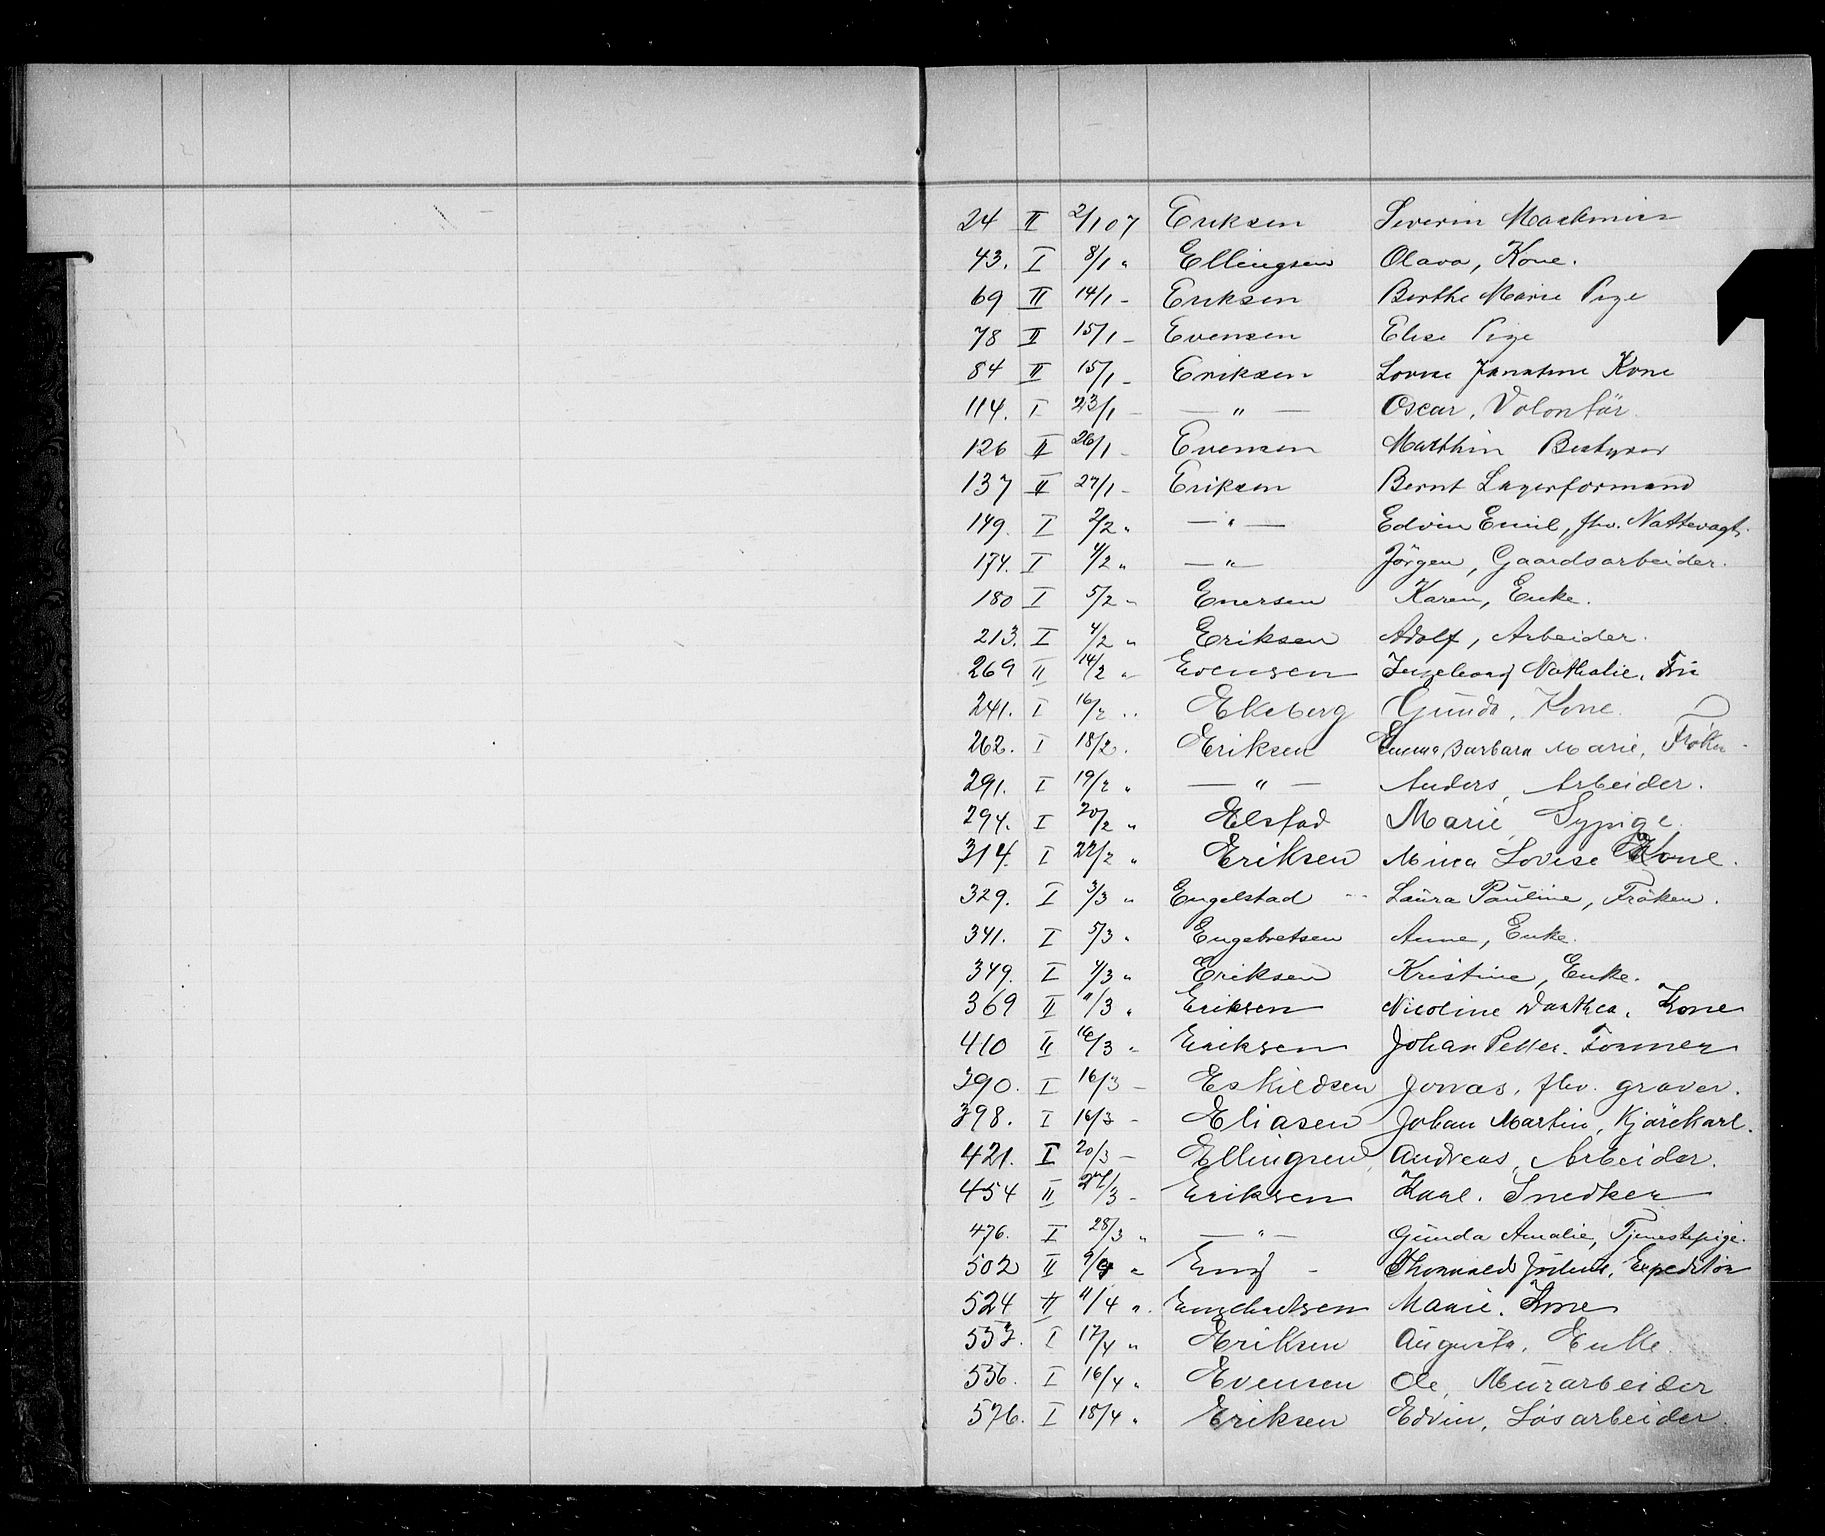 24 II 2/1 07 Eriksen Severin Maskinist
43. I 8/1 " Ellingsen Olava, Kone.
69 II 14/1 - Eriksen Berthe Marie Pige
78 II 15/1 - Evensen Elise Pige
84 II 15/1 - Eriksen Lovise Kone
114. I 23/1 - — " — Oscar, Volontär.
126 II 26/1 - Evensen Marthin Bestyrer
137 II 27/1 - Eriksen Bernt Lagerformand
149. I 2/2 " — " — Edvin Emil, fhv. Nattevagt.
174. I 4/2 " — " — Jörgen, Gaardsarbeider.
180 I 5/2 " Enersen Karen, Enke.
213. I 4/2 " Eriksen Adolf, Arbeider.
269 II 14/2 " Evensen Ingeborg Nathalie, Fru
241. I 16/2 " Ekeberg Gunda, Kone.
262. I 18/2 . Eriksen Emma Barbara Marie, Frøken
291. I 19/2 " — " — Anders, Arbeider.
294. I 20/2 " Elstad Marie, Sypige.
314. I 22/2 " Eriksen Mina Lovise Kone.
329. I 3/3 " Engelstad Laura Pauline, Fröken.
341. I 5/3 " Engebretsen Anne, Enke.
349. I 4/3 " Eriksen Kristine, Enke.
369 II 11/3 " Eriksen Nicoline Dorthea, Kone
410 II 16/3 " Eriksen Johan Petter. Former
390. I 16/3 - Eskildsen Jonas, fhv. graver.
398. I 16/3 - Eliasen Johan Martin, Kjörekarl.
421. I 20/3 - Ellingsen, Andreas, Arbeider.
454 II 27/3 - Eriksen Karl. Snedker
476. I 28/3 " — " — Gunda Amalie, Tjenestepige.
502 II 9/4 " Eng - Thorvald Julius, Expeditör
524 II 11/4 " Engebretsen Marie. Kone
553. I 17/4 " Eriksen Augusta, Enke.
556. I 16/4 " Evensen Ole, Murarbeider
576. I 18/4 " Eriksen Edvin, Løsarbeider.